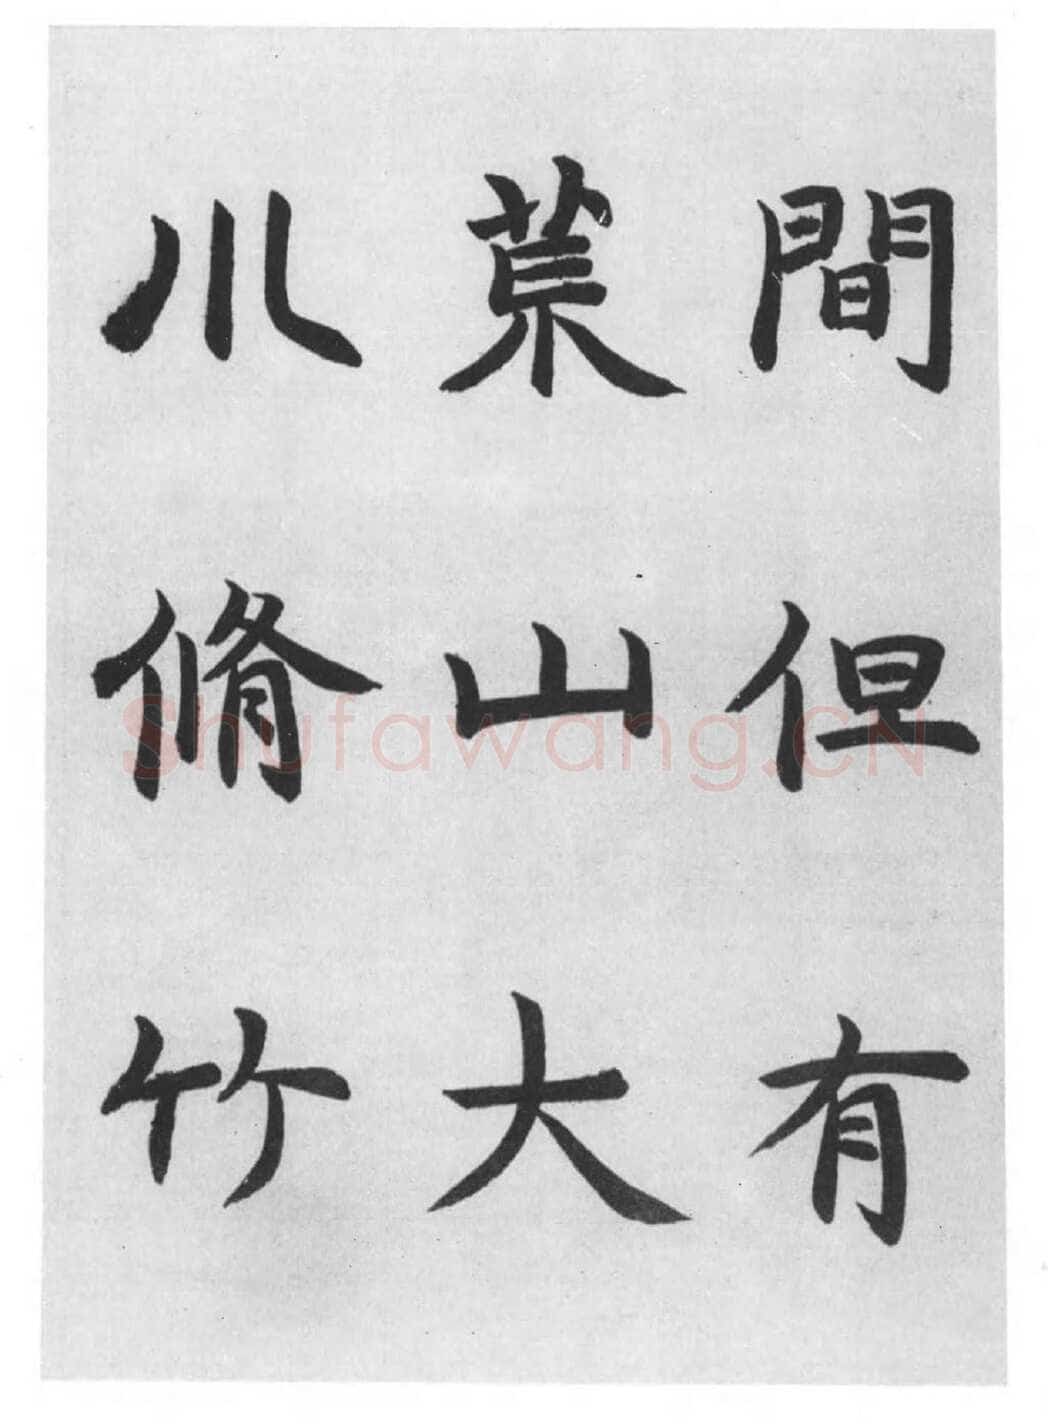 間但有
荒山大
川脩竹
Shufawang.CN